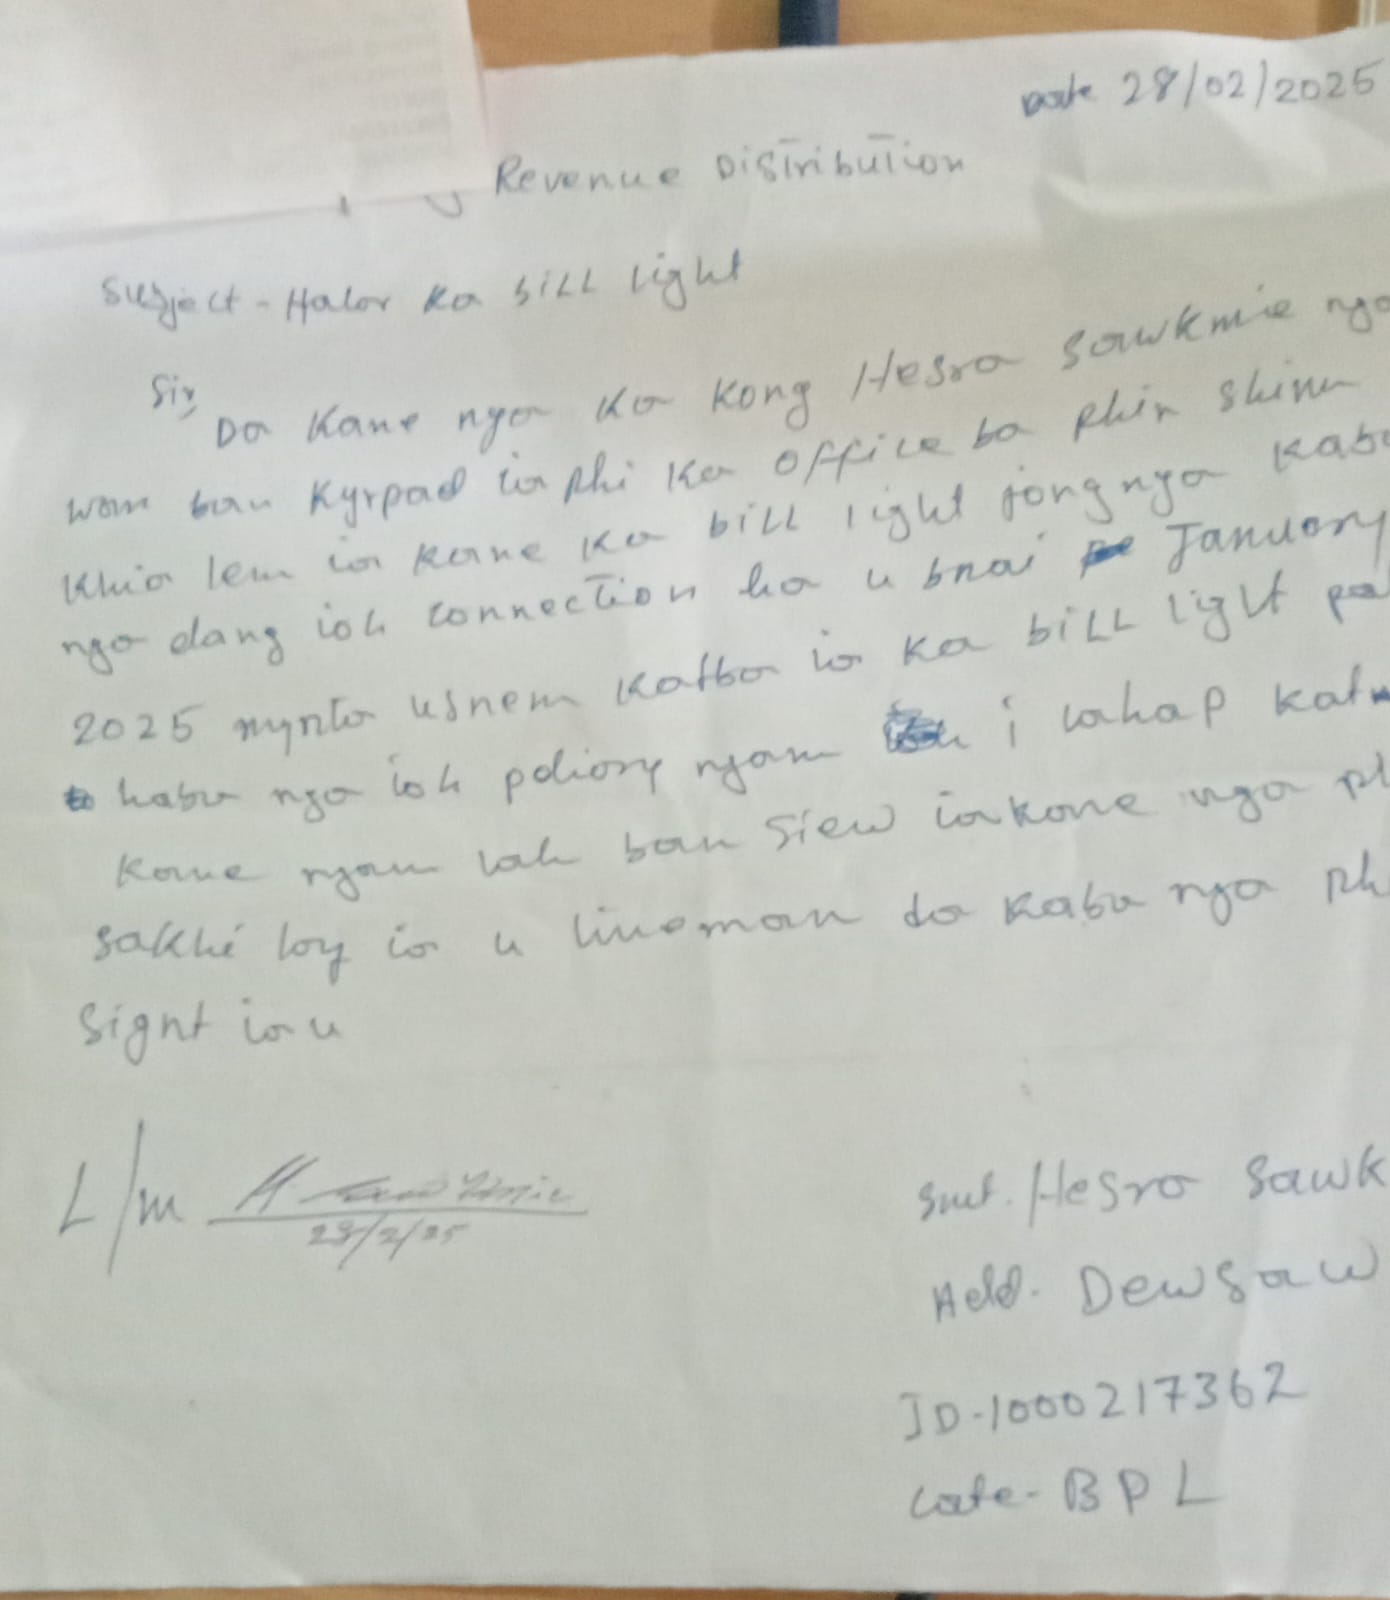 Date 28/02/2025
Revenue Distribution
Subject - Halor ka bill light
Sir,
Da kane nga ka kong Hesra sawkmie nga
wan ban kyrpad ia phi ka office ba phin shim
khia lem ia kane ka bill light jong nga kaba
nga dang ioh connection ha u bnai January
2025 mynta usnem katba ia ka bill light pa
haba nga ioh ngam i lahap kat
kane ngam lah ban siew iakane nga ph
sakhi loy ia u lineman da kaba nga ph
signt ia u
L/m
28/2/25
Smt. Hesra Sawk
Add. Dewsaw
ID-1000217362
Cate- BPL